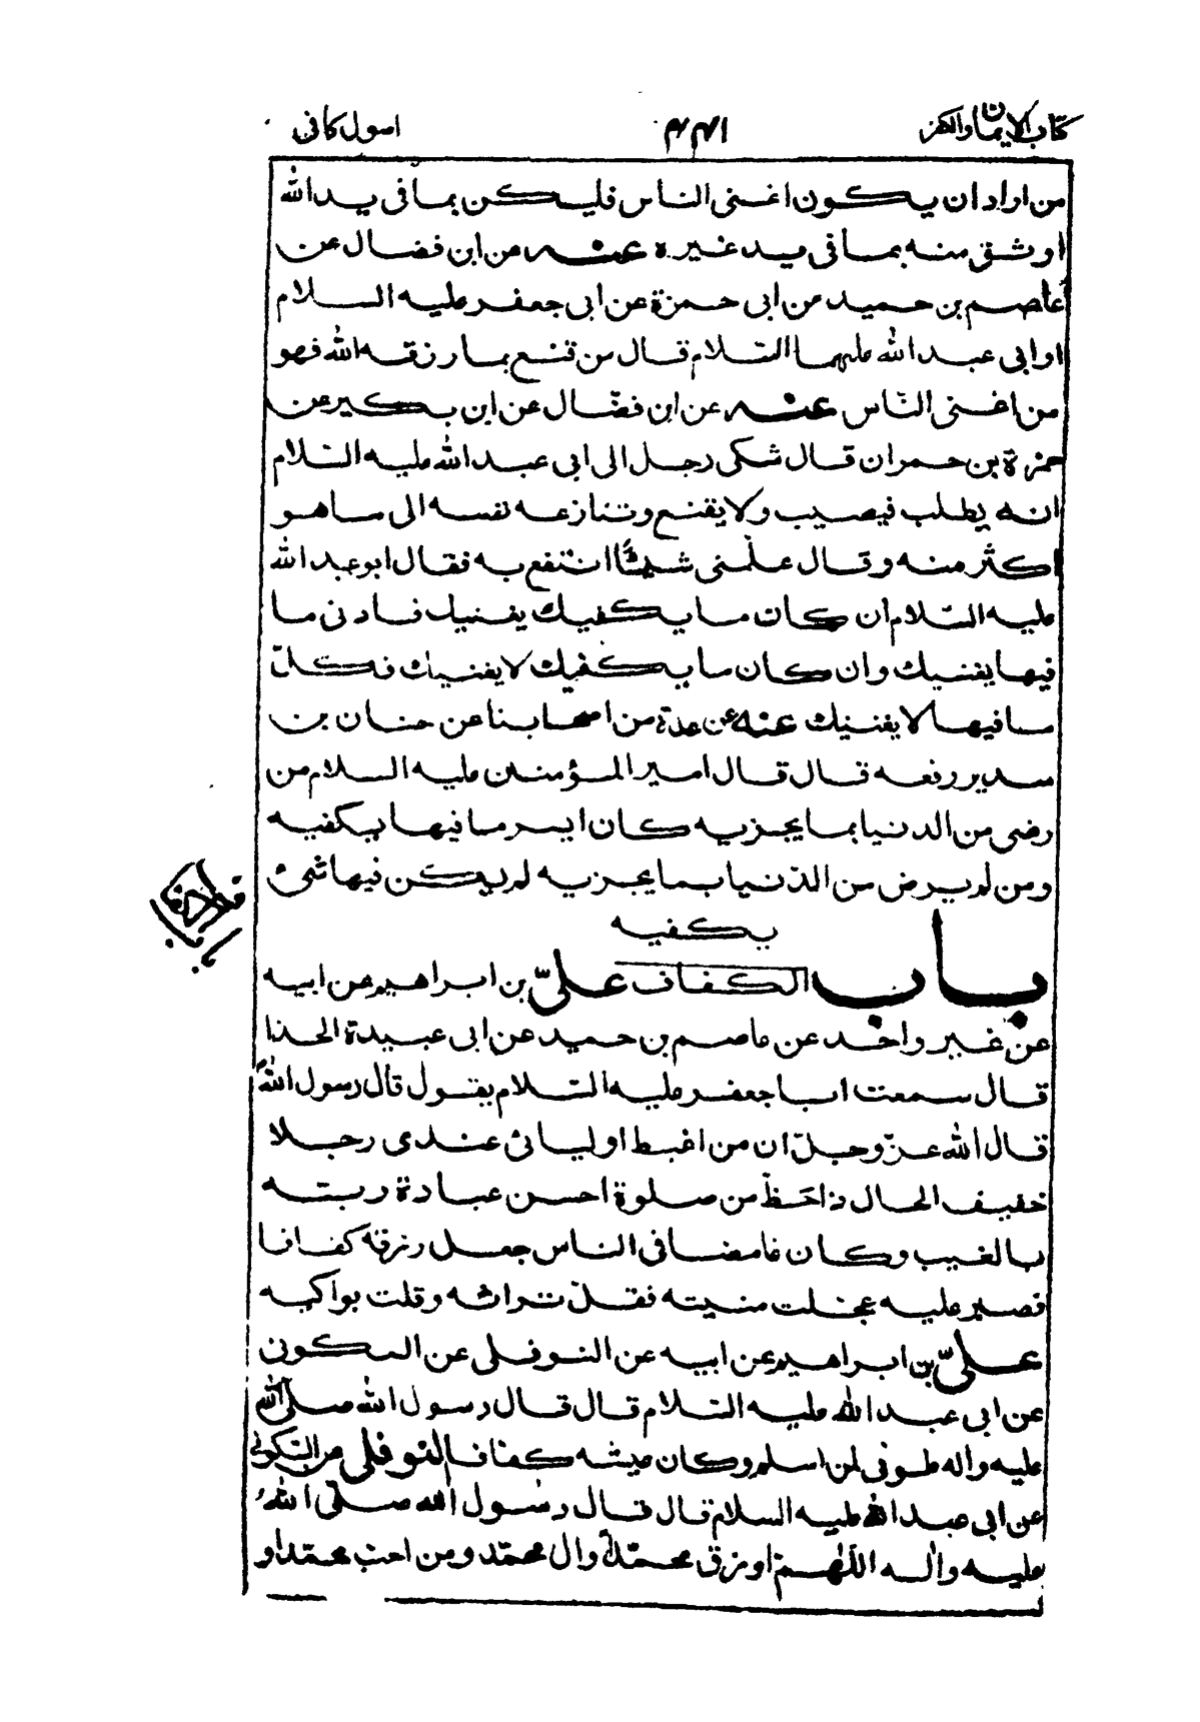 كتاب الايمان والكفر
اصول كافى
من اراد ان يكون اغنى الناس فليكن بما فى يد الله
اوثق منه بما فى يد غيره عنه من ابن فضال عن
عاصم بن حميد عن ابى حمزة عن ابى جعفر عليه السلام
او ابى عبد الله عليهما السّلام قال من قنع بما رزقه الله فهو
من اغنى النّاس عنه عن ابن فضّال عن ابن بكير عن
حمزة بن حمران قال شكى رجل الى ابى عبد الله عليه السّلام
انه يطلب فيصيب ولا يقنع وتنازعه نفسه الى ما هو
اكثر منه وقال علّمنى شيئًا انتفع به فقال ابو عبد الله
عليه السّلام ان كان ما يكفيك يغنيك فادنى ما
فيها يغنيك وان كان ما يكفيك لا يغنيك فكلّ
ما فيها لا يغنيك عنه عن عدة من اصحابنا عن حنان بن
سدير رفعه قال قال امير المؤمنين عليه السلام من
رضى من الدنيا بما يجزيه كان ايسر ما فيها يكفيه
ومن لم يرض من الدّنيا بما يجزيه لم يكن فيها شئ
يكفيه
باب الكفاف علىّ بن ابراهيم عن ابيه
عن غير واحد عن عاصم بن حميد عن ابى عبيدة الحذا
قال سمعت ابا جعفر عليه السّلام يقول قال رسول الله
قال الله عزّ وجلّ ان من اغبط اوليائى عندى رجلا
خفيف الحال ذا حَظّ من صلوة احسن عبادة ربّه
بالغيب وكان غامضا فى الناس جعل رزقه كفافا
فصبر عليه عجّلت منيته فقلّ تراثه وقلت بواكيه
علىّ بن ابراهيم عن ابيه عن النوفلى عن السكونى
عن ابى عبد الله عليه السّلام قال قال رسول الله صلى الله
عليه واله طوبى لمن اسلم وكان عيشه كفافا النوفلى عن السّكونى
عن ابى عبد الله عليه السلام قال قال رسول الله صلّى الله
عليه واله اللّهمّ ارزق محمّدًا وال محمّد ومن احبّ محمّدا و